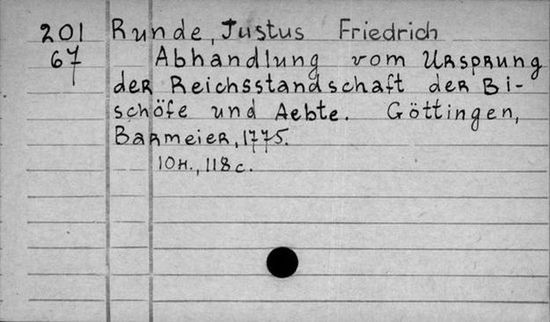 201 Runde, Justus Friedrich
67 Abhandlung vom Ursprung
der Reichsstandschaft der Bi-
schöfe und Aebte. Göttingen,
Barmeier, 1775.
10н., 118 с.